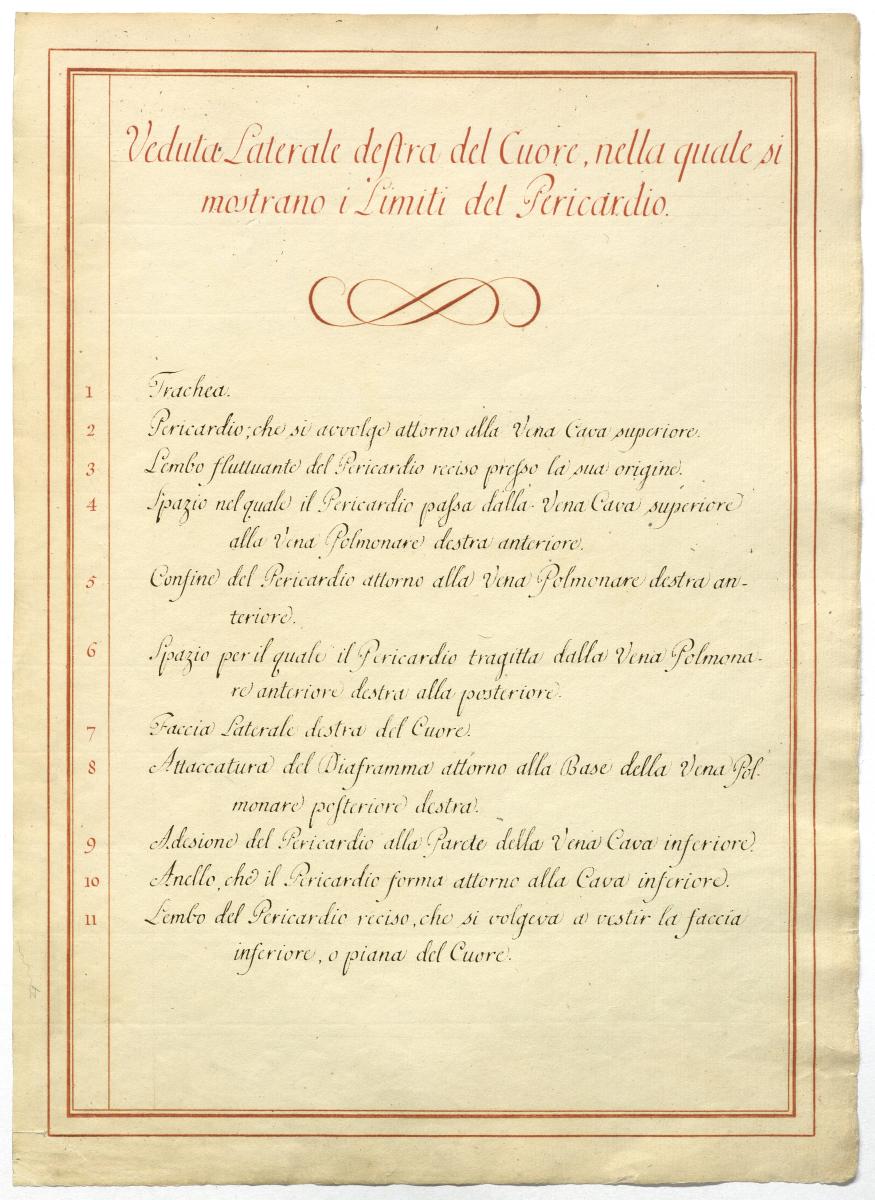 Veduta Laterale destra del Cuore, nella quale si
mostrano i Limiti del Pericardio.
1 Trachea.
2 Pericardio, che si avvolge attorno alla Vena Cava superiore.
3 Lembo fluttuante del Pericardio reciso presso la sua origine.
4 Spazio nel quale il Pericardio passa dalla Vena Cava superiore
alla Vena Polmonare destra anteriore.
5 Confine del Pericardio attorno alla Vena Polmonare destra an-
teriore.
6 Spazio per il quale il Pericardio tragitta dalla Vena Polmona-
re anteriore destra alla posteriore.
7 Faccia Laterale destra del Cuore.
8 Attaccatura del Diaframma attorno alla Base della Vena Pol-
monare posteriore destra.
9 Adesione del Pericardio alla Parete della Vena Cava inferiore.
10 Anello, che il Pericardio forma attorno alla Cava inferiore.
11 Lembo del Pericardio reciso, che si volgeva a vestir la faccia
inferiore, o piana del Cuore.